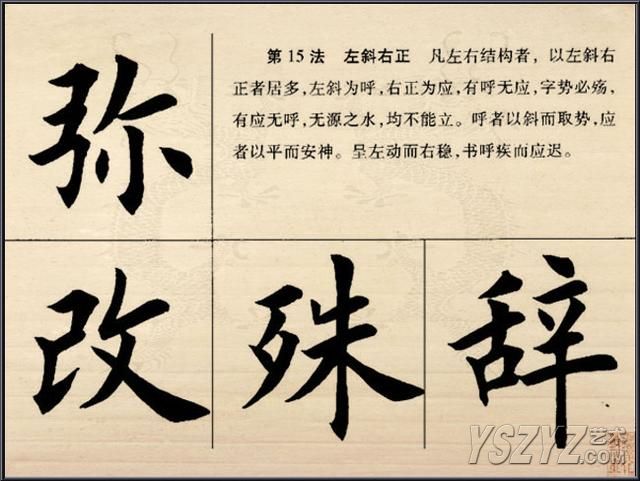 弥
第15法 左斜右正 凡左右结构者，以左斜右
正者居多，左斜为呼，右正为应，有呼无应，字势必殇，
有应无呼，无源之水，均不能立。呼者以斜而取势，应
者以平而安神。呈左动而右稳，书呼疾而应迟。
改 殊 辞
YSZYZ艺术
.COM